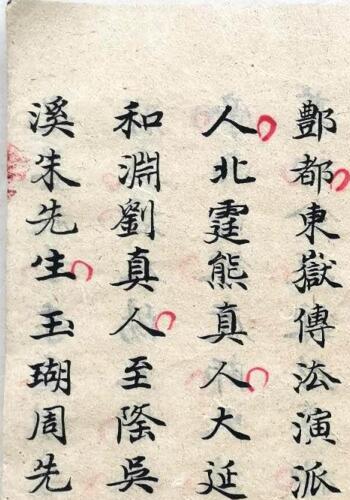 酆都東嶽傳法演派
人北霆熊真人大延
和淵劉真人至隆吳
溪朱先生玉瑚周先